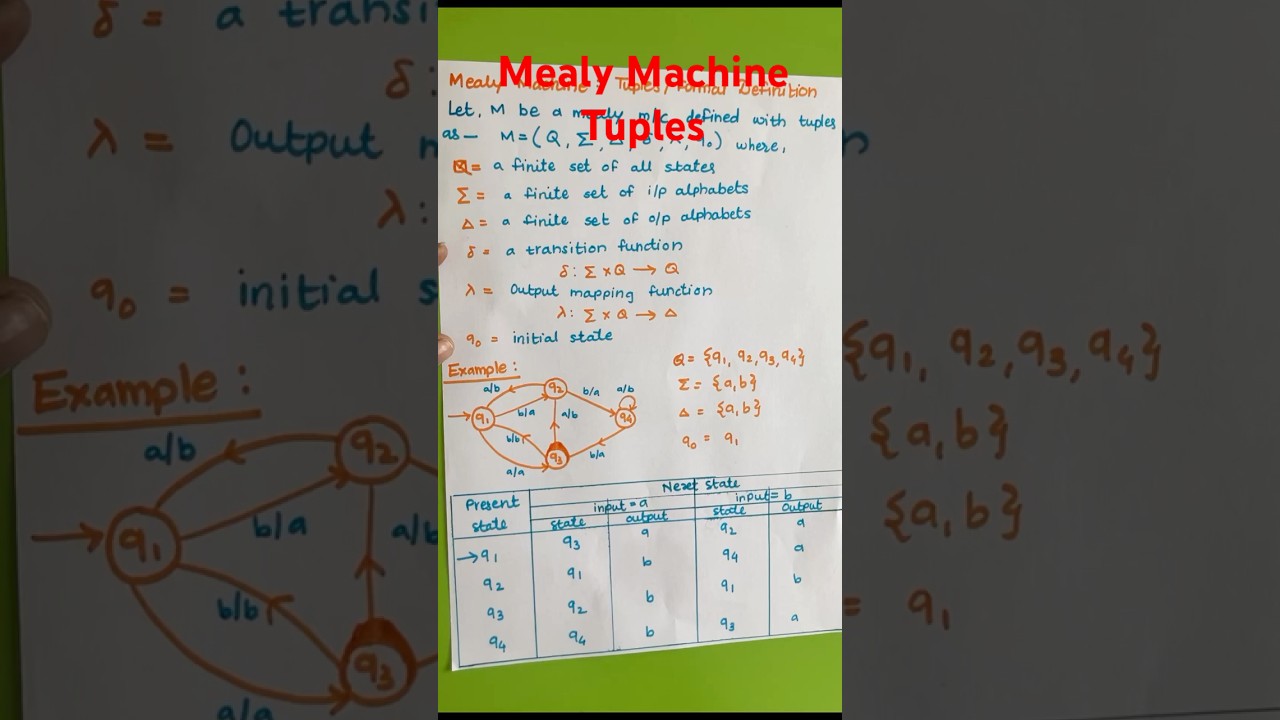 Mealy Machine
Tuples
Mealy Machine : Tuples / Formal Definition
Let, M be a mealy m/c defined with tuples
as — M = ( Q , Σ , Δ , δ , λ , q₀ ) where,
Q = a finite set of all states
Σ = a finite set of i/p alphabets
Δ = a finite set of o/p alphabets
δ = a transition function
δ : Σ × Q → Q
λ = Output mapping function
λ : Σ × Q → Δ
q₀ = initial state
Example :
Q = {q₁, q₂, q₃, q₄}
Σ = {a, b}
Δ = {a, b}
q₀ = q₁
a/b
q₂
b/a
a/b
q₁
b/a
a/b
q₄
b/b
q₃
b/a
a/a
Present state
Next state
input = a
input = b
state output state output
→ q₁ q₃ a q₂ a
q₂ q₁ b q₄ a
q₃ q₂ b q₁ b
q₄ q₄ b q₃ a
δ = a transi
δ :
λ = Output m
λ :
q₀ = initial s
Example :
a/b
q₂
q₁
b/a
a/b
b/b
q₃
a/a
{q₁, q₂, q₃, q₄}
{a, b}
{a, b}
= q₁